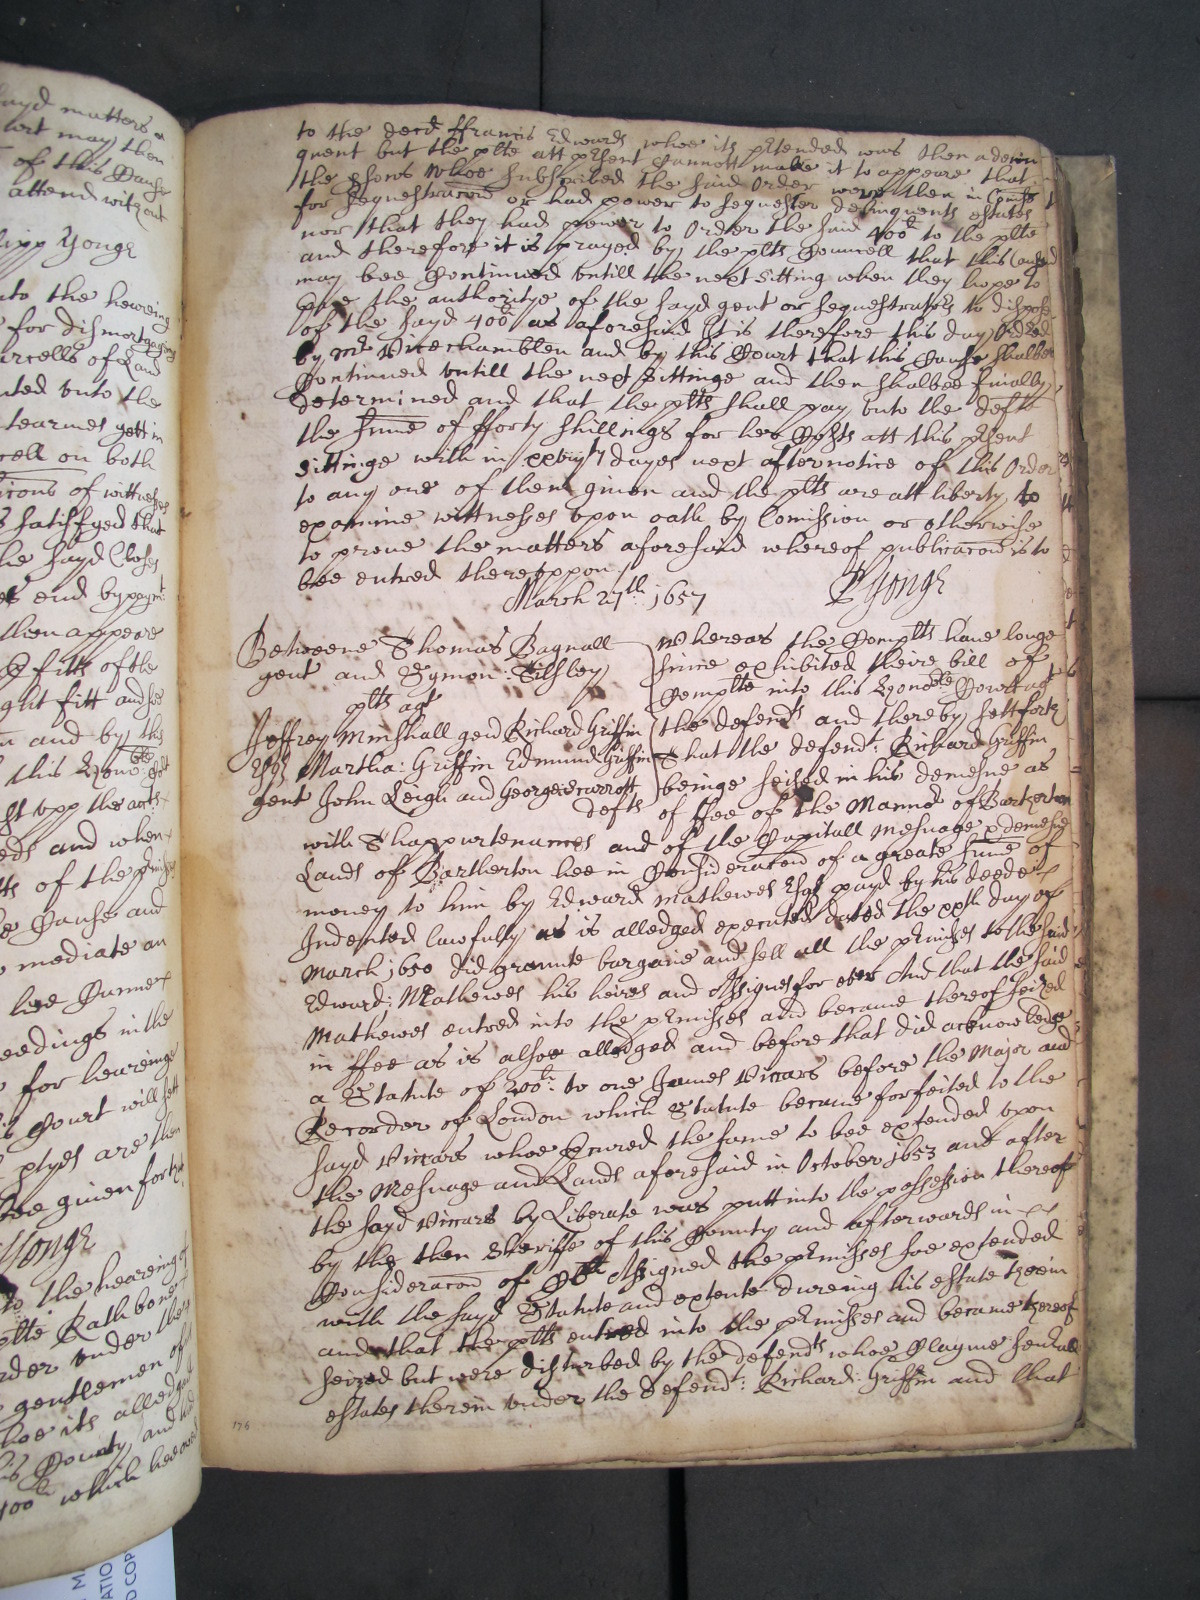 ayd matters
ort may then
of this Cause
attend without
lipp Yonge
nto the heareing
for dismortgageing
arcells of Land
nted vnto the
tearmes yett in
cell on both
icons of wittnesses
s satissfyed that
he sayd Closes
es end by paymt
then appeare
ofitts of the
ght fitt and soe
n and by this
this Honoble Cort
eds and when
ts of the
e Cause and
mediate an
hee Cannet
eedings in the
for heareinge
is Court will sett
ptyes are then
bee given forth
Yonge
to the heareing of
plte Rathbone
rder vnder the
gentlemen of
hoe its alledged
is County and
400li which hee
to the decd ffrancis Edwards whoe its ptended was then a delin
quent but the plte att psent Cannott make it to appeare that
the psons whoe subscribed the said Order were then in Comiss
for sequestracon or had power to sequester delinquents estates
nor that they had power to Order the said 400li to the plte
and therefore it is prayed by the plts Councell that this Cause
may bee Continued vntill the next sitting when they hope to
prove the authoritye of the sayd gent or sequestrators to dispose
of the sayd 400li as aforesaid It is therefore this day Ordred
by mr Vicechamblen and by this Court that this Cause shalbee
Continued vntill the next sittinge and then shalbee finally
determined and that the plts shall pay vnto the defte
the sume of fforty shillings for her Costs att this psent
sittinge with in xxviijty dayes next after notice of this Order
to any one of them given and the plts are att liberty to
examine wittnesses vpon oath by Comission or otherwise
to prove the matters aforesaid whereof publicacon is to
bee entred thereuppon
March 27th 1657 P Yonge
Betweene Thomas Bagnall
gent and Symon: Tilsley
plts agt
Jeffrey Minshall gen Richard Griffin
Esqr Martha: Griffin Edmund Griffin
gent John Leigh and George
defts
Whereas the Complts have longe
since exhibited theire bill of
Complte into this Honoble Court agt
the defendts and thereby settforth
That the defendt: Richard Griffin
beinge seised in his demesne as
of ffee of the Mannor of Bartherton
with Thappurtenances and of the Capitall Mesuage & demesne
Lands of Bartherton hee in Consideracon of a greate sume of
money to him by Edward Mathewes Esqr payd by his deede
Indented lawfully as is alledged executed dated the xxth day of
March 1650 did graunte bargaine and sell all the pmisses to the said
Edward: Mathewes his heires and Assignes for ever And that the said
Mathewes entred into the pmisses and became thereof seized
in ffee as is alsoe alledged and before that did acknowledge
a Statute of 200li to one James Viccars before the Major and
Recorder of London which Statute became forfeited to the
sayd Viccars whoe pcured the same to bee extended vpon
the Mesuage and Lands aforesaid in October 1653 and after
the sayd Viccars by Liberate was putt into the possession thereof
by the then Sheriffe of this County and afterwards in
Consideracon of Assigned the pmisses soe extended
with the sayd Statute and extente dureing his estate therein
and that the plts entred into the pmisses and became thereof
seized but were disturbed by the defendts whoe Clayme severall
estates therein vnder the defendt: Richard: Griffin and that
176